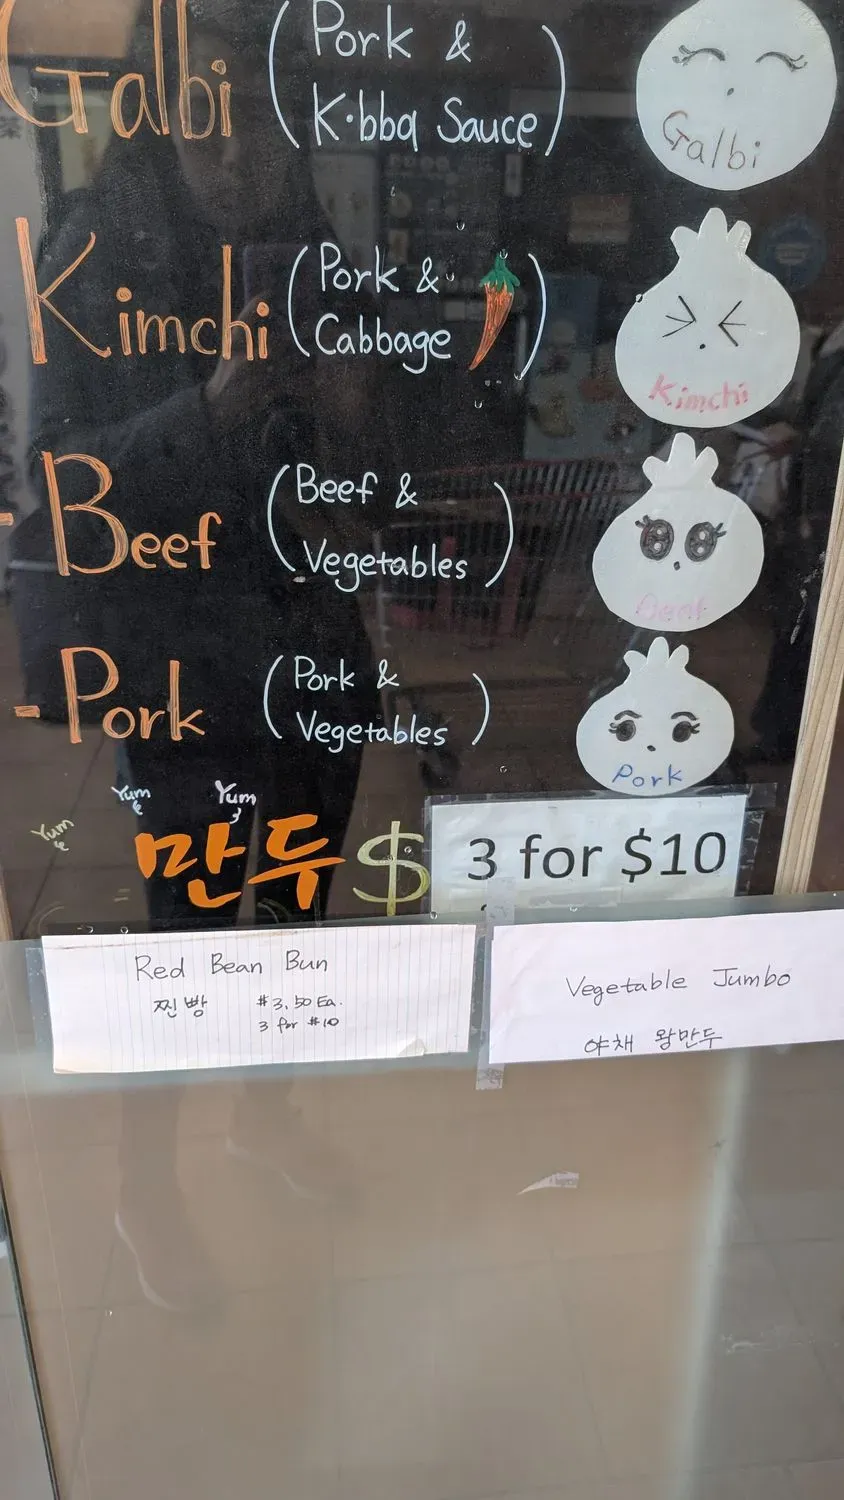 Galbi (Pork &
K·bbq Sauce)
Galbi
Kimchi (Pork &
Cabbage )
Kimchi
- Beef (Beef &
Vegetables)
Beef
- Pork (Pork &
Vegetables)
Pork
Yum Yum Yum
만두 $ 3 for $10
Red Bean Bun
찐빵 $3.50 Ea.
3 for $10
Vegetable Jumbo
야채 왕만두